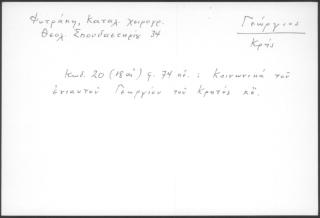 Φυτράκη, Καταλ. Χειρογρ.
Θεολ. Σπουδαστηρίου 34
Γεώργιος
Κρής
Κωδ. 20 (18 αἰ) φ. 74 κἑ. : Κοινωνικὰ τοῦ
ἐνιαυτοῦ Γεωργίου τοῦ Κρητὸς κἑ.